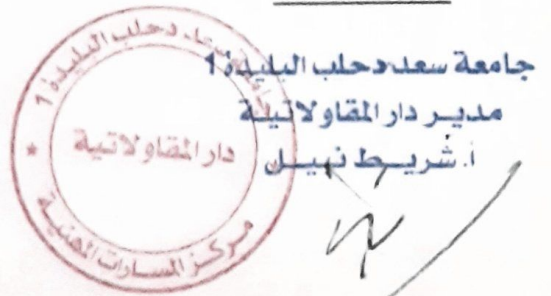 جامعة سعد دحلب البليدة 1
مدير دار المقاولاتية
أ. شريط نبيل
جامعة سعد دحلب البليدة 1
دار المقاولاتية
مركز المسارات المهنية